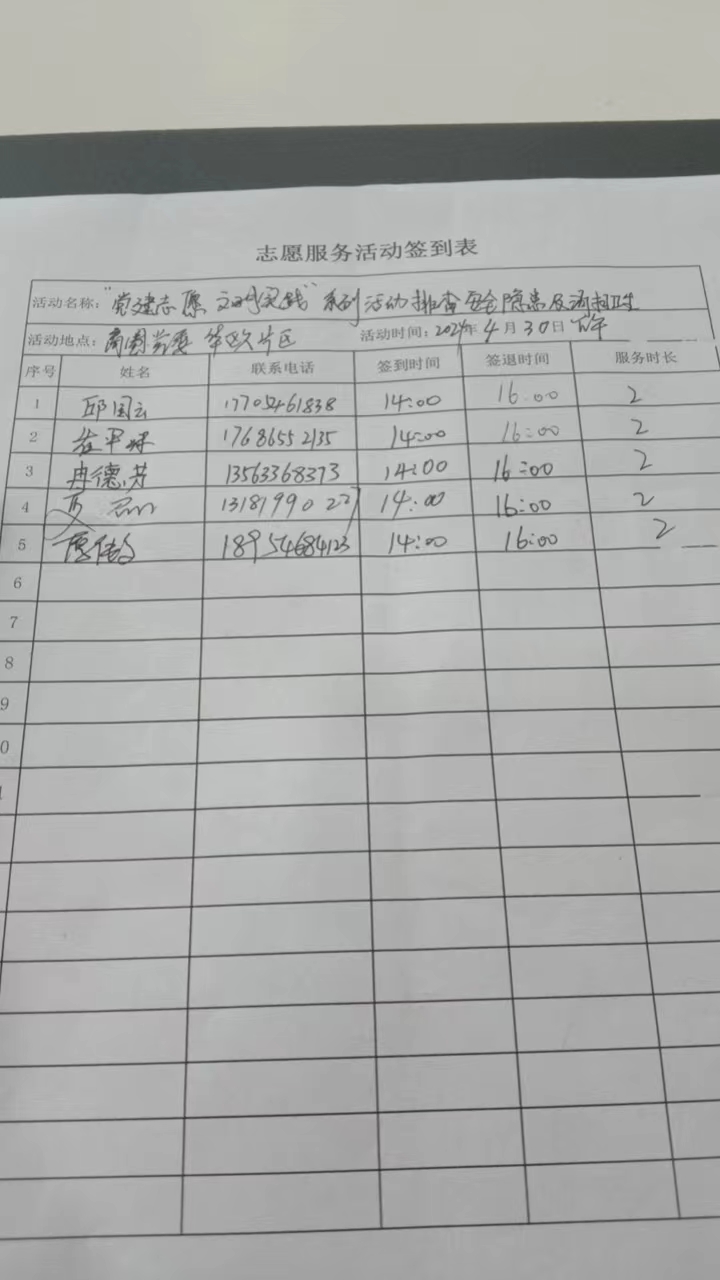 志愿服务活动签到表
活动名称："党建志愿 文明实践"系列活动排查安全隐患及清扫卫生
活动地点：商圈党委 华 片区 活动时间：2024年4月30日下午
序号 姓名 联系电话 签到时间 签退时间 服务时长
1 邱国云 17705461838 14:00 16:00 2
2 17686552135 14:00 16:00 2
3 冉德芳 13563368373 14:00 16:00 2
4 13181990227 14:00 16:00 2
5 18954684123 14:00 16:00 2
6
7
8
9
0